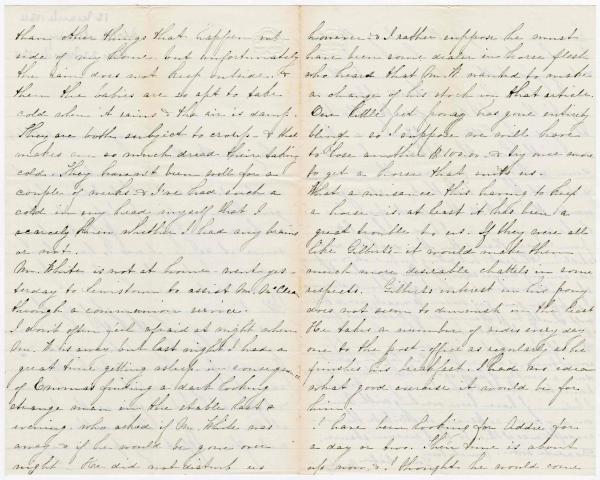 than other things that happen out-
side of my home, but unfortunately
the rain does not keep outside. &
then the babies are so apt to take
cold when it rains & the air is damp.
They are both subject to croup - & that
makes me so much dread their taking
cold. They haven't been well for a
couple of weeks & I've had such a
cold in my head myself that I
scarcely knew whether I had any brains
or not.
Mr. White is not at home - went yes-
terday to Lewistown to assist Mr. McClean
through a communion service.
I don't often feel afraid at night when
Mr. W. is away but last night I had a
great time getting asleep in consequence
of Emma's finding a dark looking
strange man in the stable last
evening, who asked if Mr. White was
away & if he would be gone over
night. He did not disturb us
however & I rather suppose he must
have been some dealer in horse flesh
who heard that Mr. W. wanted to make
a change of his stock in that article.
Our little pet poney has gone entirely
blind - so I suppose we will have
to lose another $100.00 & try once more
to get a horse that suits us.
What a nuisance this having to keep
a horse is. at least it has been a
great trouble to us. If they were all
like Gilberts - it would make them
much more desirable chattels in some
respects. Gilberts interest in his pony
does not seem to diminish in the least
He takes a number of rides every day
one to the post-office as regularly as he
finishes his breakfast. I had no idea
what good exercise it would be for
him.
I have been looking for Addie for
a day or two. Their time is about
up now, & I thought he would come